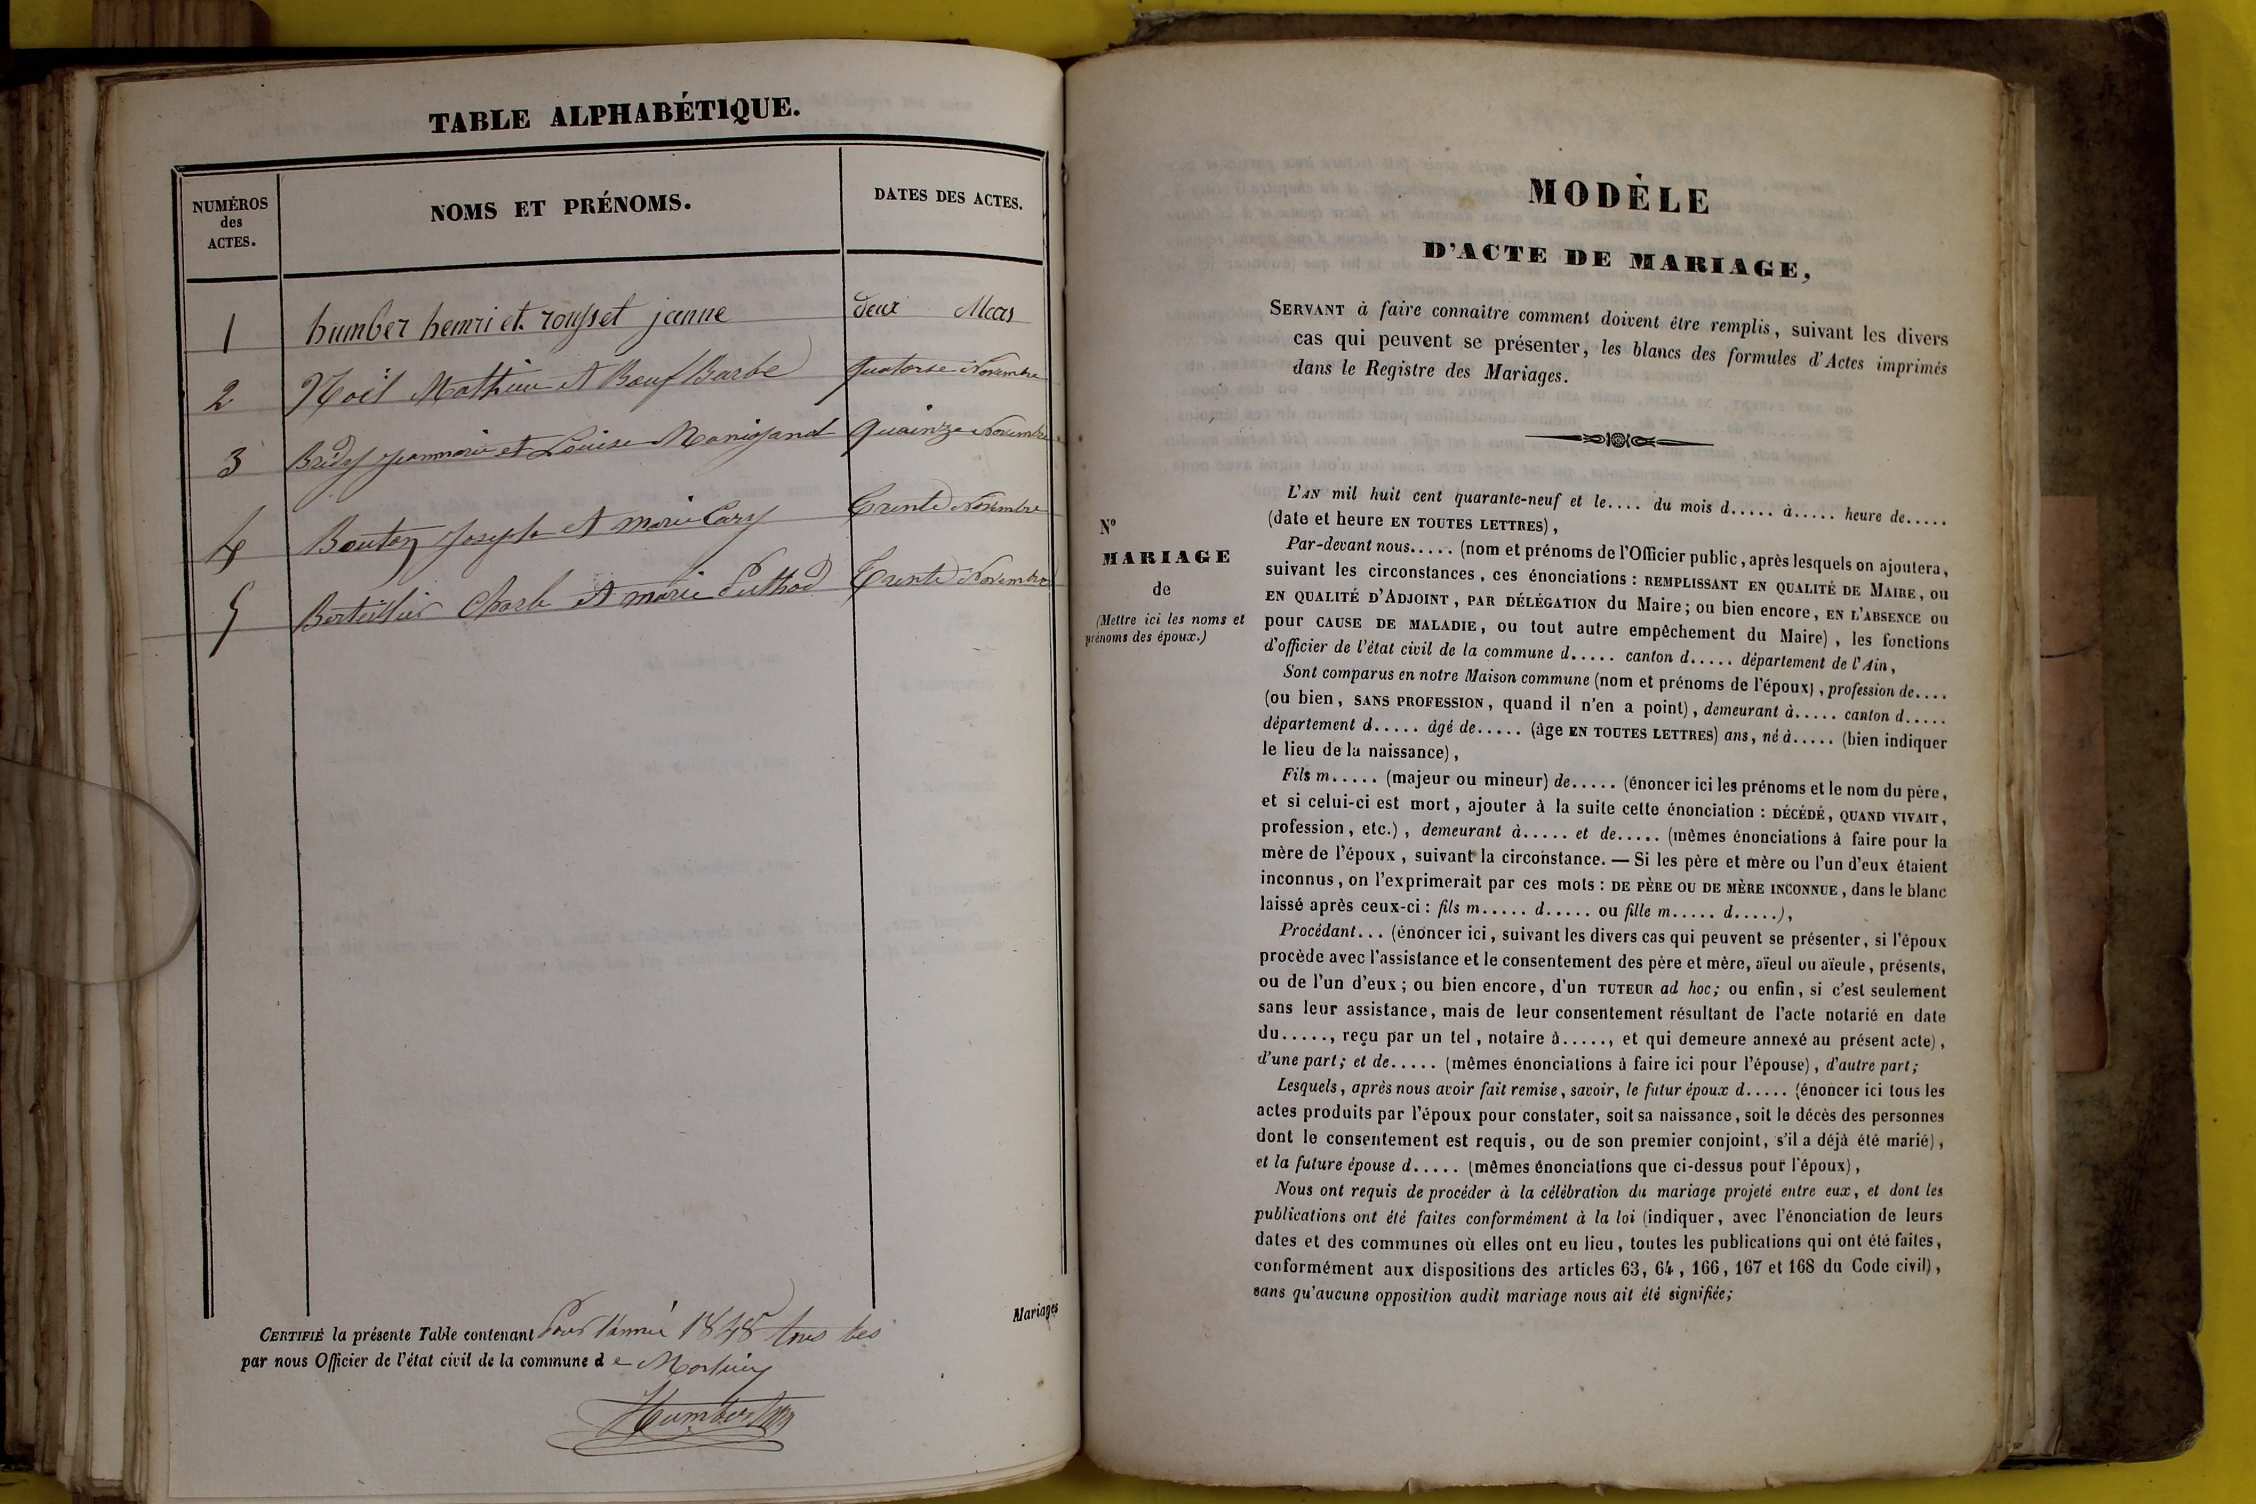 TABLE ALPHABÉTIQUE.
NUMÉROS
des
ACTES.
NOMS ET PRÉNOMS.
DATES DES ACTES.
1 humber henri et rousset janne deux Mars
2 Noël Mathieu et Bœuf Barbe quatorse Novembre
3 Jeanmarie et Louise quainze Novembre
4 Bouton Joseph et marie Cary Trente Novembre
5 Charle et marie Puthod Trente Novembre
CERTIFIÉ la présente Table contenant Pour l'année 1848 tous les Mariages
par nous Officier de l'état civil de la commune de
Humbert
MODÈLE
D'ACTE DE MARIAGE,
SERVANT à faire connaître comment doivent être remplis, suivant les divers
cas qui peuvent se présenter, les blancs des formules d'Actes imprimés
dans le Registre des Mariages.
N°
MARIAGE
de
(Mettre ici les noms et
prénoms des époux.)
L'AN mil huit cent quarante-neuf et le.... du mois d..... à..... heure de.....
(date et heure EN TOUTES LETTRES),
Par-devant nous..... (nom et prénoms de l'Officier public, après lesquels on ajoutera,
suivant les circonstances, ces énonciations : REMPLISSANT EN QUALITÉ DE MAIRE, ou
EN QUALITÉ D'ADJOINT, PAR DÉLÉGATION du Maire; ou bien encore, EN L'ABSENCE ou
pour CAUSE DE MALADIE, ou tout autre empêchement du Maire), les fonctions
d'officier de l'état civil de la commune d..... canton d..... département de l'Ain,
Sont comparus en notre Maison commune (nom et prénoms de l'époux), profession de....
(ou bien, SANS PROFESSION, quand il n'en a point), demeurant à..... canton d.....
département d..... âgé de..... (âge EN TOUTES LETTRES) ans, né à..... (bien indiquer
le lieu de la naissance),
Fils m..... (majeur ou mineur) de..... (énoncer ici les prénoms et le nom du père,
et si celui-ci est mort, ajouter à la suite cette énonciation : DÉCÉDÉ, QUAND VIVAIT,
profession, etc.), demeurant à..... et de..... (mêmes énonciations à faire pour la
mère de l'époux, suivant la circonstance. — Si les père et mère ou l'un d'eux étaient
inconnus, on l'exprimerait par ces mots : DE PÈRE OU DE MÈRE INCONNUE, dans le blanc
laissé après ceux-ci : fils m..... d..... ou fille m..... d.....),
Procédant... (énoncer ici, suivant les divers cas qui peuvent se présenter, si l'époux
procède avec l'assistance et le consentement des père et mère, aïeul ou aïeule, présents,
ou de l'un d'eux; ou bien encore, d'un TUTEUR ad hoc; ou enfin, si c'est seulement
sans leur assistance, mais de leur consentement résultant de l'acte notarié en date
du....., reçu par un tel, notaire à....., et qui demeure annexé au présent acte),
d'une part; et de..... (mêmes énonciations à faire ici pour l'épouse), d'autre part;
Lesquels, après nous avoir fait remise, savoir, le futur époux d..... (énoncer ici tous les
actes produits par l'époux pour constater, soit sa naissance, soit le décès des personnes
dont le consentement est requis, ou de son premier conjoint, s'il a déjà été marié),
et la future épouse d..... (mêmes énonciations que ci-dessus pour l'époux),
Nous ont requis de procéder à la célébration du mariage projeté entre eux, et dont les
publications ont été faites conformément à la loi (indiquer, avec l'énonciation de leurs
dates et des communes où elles ont eu lieu, toutes les publications qui ont été faites,
conformément aux dispositions des articles 63, 64, 166, 167 et 168 du Code civil),
sans qu'aucune opposition audit mariage nous ait été signifiée;